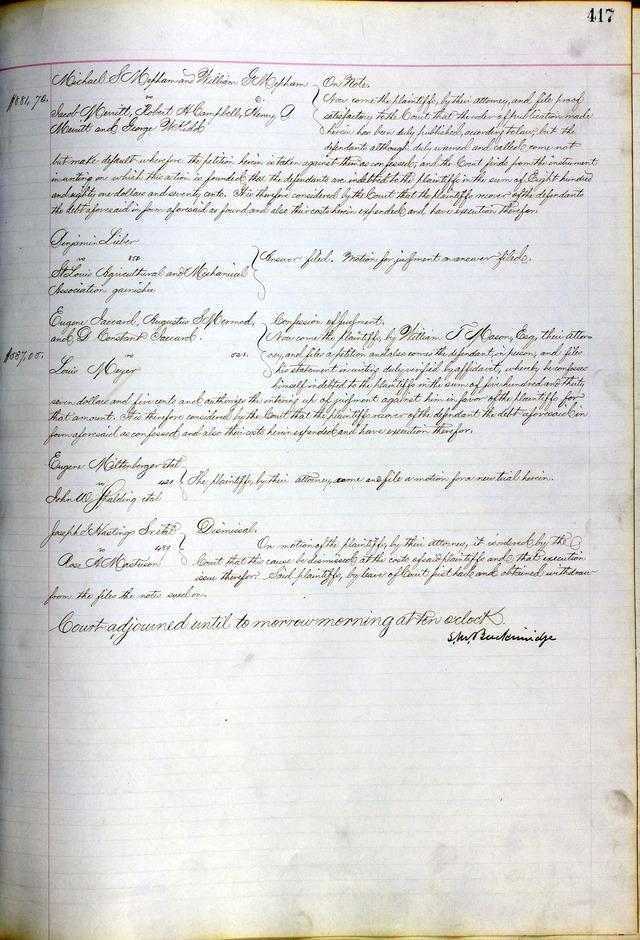 417
Michael S Mepham and William G Mepham
$881,70.
vs
Jacob Merritt, Robert H Campbell, Henry A
Merritt and George W Kidd
On Note.
Now come the plaintiffs, by their attorney, and file proof
satisfactory to the Court that the order of publication made
herein has been duly published, according to law; but the
defendants although duly warned and called come not
but make default wherefore the petition herein is taken against them as confessed, and the Court finds from the instrument
in writing on which this action is founded, that the defendants are indebted to the plaintiffs in the sum of Eight hundred
and eighty one dollars and seventy cents. It is therefore considered by the Court that the plaintiffs recover of the defendants
the debt aforesaid in form aforesaid as found and also their costs herein expended, and have execution therefor.
Benjamin Lieber
vs 850
St Louis Agricultural and Mechanical
Association garnishee
Answer filed. Motion for judgment on answer filed.
Eugene Jaccard, Augustus S Mermod,
and D Constant Jaccard.
$537,05.
vs 521.
Louis Meyer
Confession of judgment.
Now come the plaintiffs, by William T Mason, Esq, their attor-
ney, and files a petition and also comes the defendant, in person, and files
his statement in writing duly verified by affidavit, whereby he confesses
himself indebted to the plaintiffs in the sum of five hundred and thirty
seven dollars and five cents and authorizes the entering up of judgment against him in favor of the plaintiffs for
that amount. It is therefore considered by the Court that the plaintiffs recover of the defendant the debt aforesaid in
form aforesaid as confessed and also their costs herein expended and have execution therefor.
Eugene Miltenberger et al
vs 420
John W Spalding et al
The plaintiffs, by their attorney, come and file a motion for a new trial herein.
Joseph E Hastings Sr et al
vs 489
Rose A Masterson
Dismissal.
On motion of the plaintiffs, by their attorney, it is ordered by the
Court that this cause be dismissed at the costs of said plaintiffs and that execution
issue therefor. Said plaintiffs, by leave of Court first had and obtained withdraw
from the files the notes sued on.
Court adjourned until to morrow morning at ten o'clock.
S. M. Breckinridge